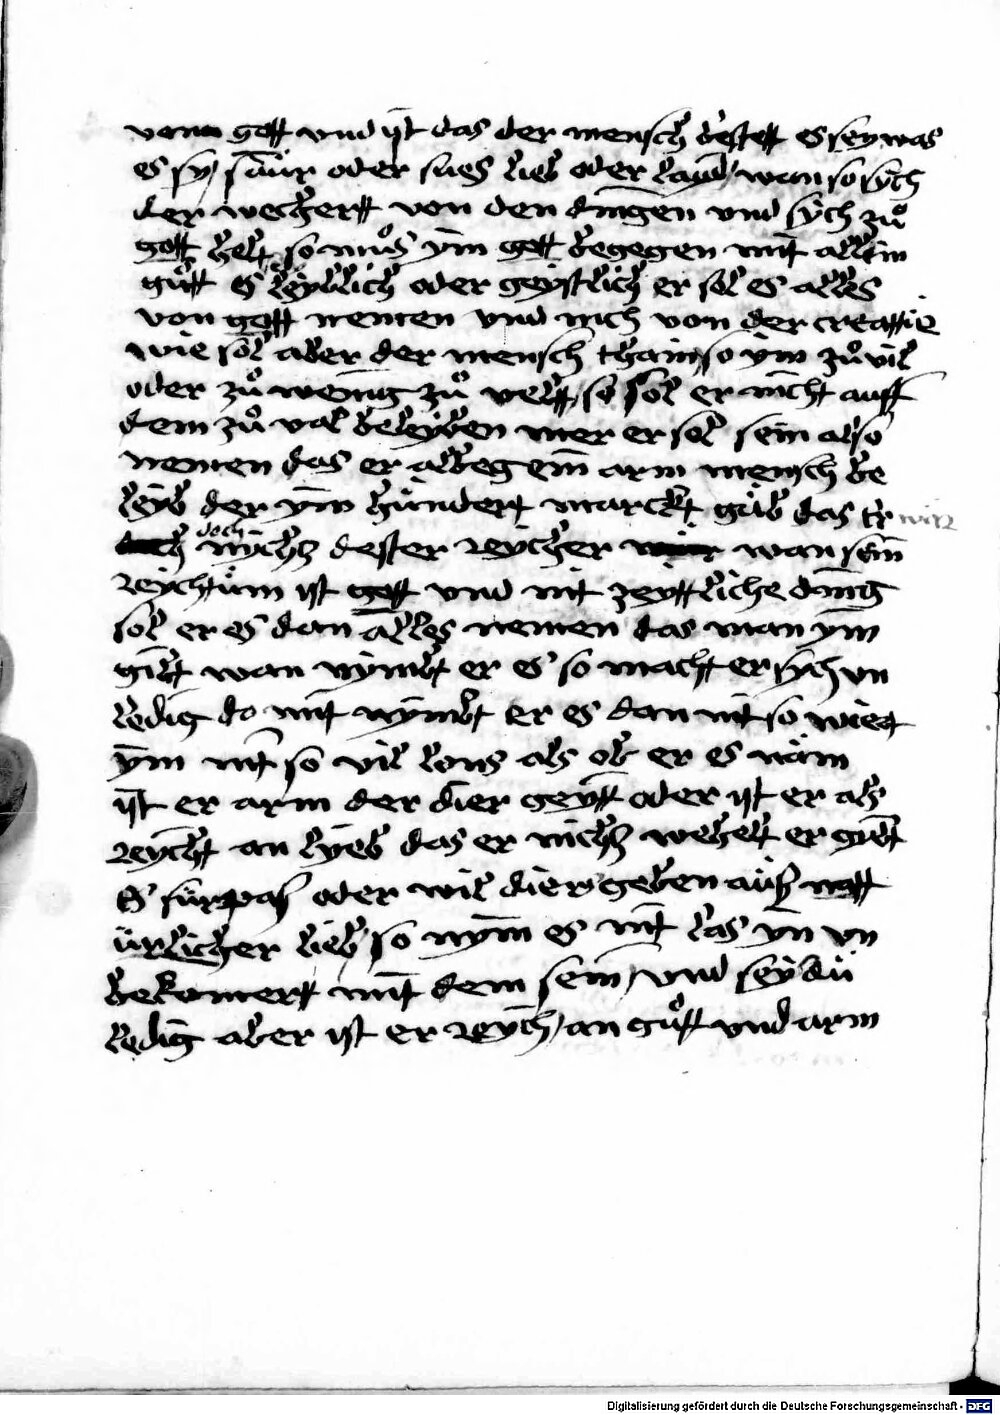 vonn gott vnd ist das der mensch bestett es sey was
es sy / sāur oder sues lieb oder layd / wan so sych
der wechertt von den dingen vnd sych zů
gott helt so můs ym gott begegen mit allem
gůtt Es leyblich oder geystlich er sol es alles
von gott nemen vnd nich von der creattie
wie sol aber der mensch thain / so ym zů vil
oder zů wenig zů velt / so sol er nicht auff
dem zů val beleyben mer er sol sein also
nemen das er alleg ein arm mensch be
leyb der ym hundert marckt gäb das er wirt
doch nychtz dester reycher wan sein
reychtum ist gott vnd nit zeyttliche ding
sol er es dan alles nemen das man ym
gibt wan nymbt er es so macht er sych vn
ledig do mit nymbt er es dan nit so wiert
ym nit so vil lons als ob er es näm
ist er arm der dier geytt oder ist er als
reycht an lyeb das er nichtz wehelt er gibt
Es fürpas oder wil dier geben auß natt
ürlicher lieb / so nym es nit las yn vn
bekomert mit dem sein / vnd sey dü
ledig aber ist er reych / an gůtt vnd arm
Digitalisierung gefördert durch die Deutsche Forschungsgemeinschaft - DFG